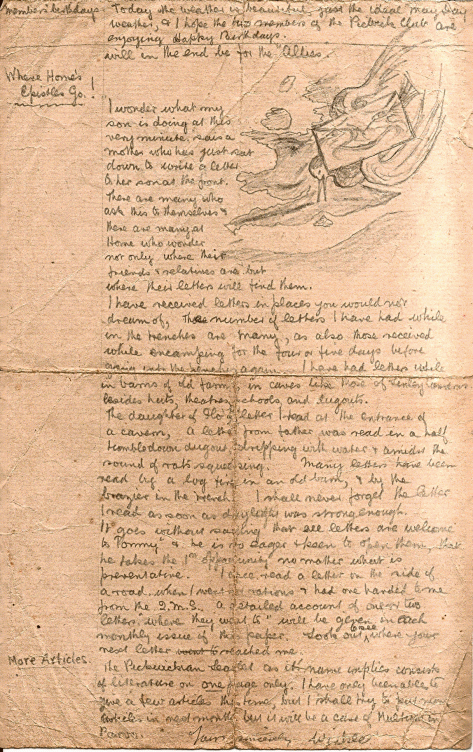 members birthdays. Today the weather is beautiful, just the ideal May Day
weather, & I hope the two members of the Pickwick Club are
enjoying Happy Birthdays.
will in the end be for the "Allies.
Where Home's
Epistles Go!
"I wonder what my
son is doing at this
very minute" says a
mother who has just sat
down to write a letter
to her son at the front.
There are many who
ask this to themselves &
there are many at
Home who wonder
not only where their
friends & relatives are but
where their letters will find them.
I have received letters in places you would not
dream of, The number of letters I have had while
in the trenches are many, as also those received
while encamping for the four or five days before
going into the trenches again. I have had letters while
in barns of old farms, in caves like those of
besides huts, theatres, schools and dugouts.
The daughter of letter I read at the entrance of
a cavern, a letter from father was read in a half
tumbledown dugout dripping with water & amidst the
sound of rats squeaking. Many letters have been
read by a log fire in an old barn, & by the
brazier in the trench. I shall never forget the letter
I read as soon as daylight was strong enough.
It goes without saying that all letters are welcome
to Tommy & he is so eager & keen to open them, that
he takes the 1st opportunity no matter where is
presentative. I once read a letter on the side of
a road, when I went for rations & had one handed to me
from the Q.M.S. A detailed account of one or two
letters, where they went to" will be given in each
monthly issue of this paper. Look out, where your
next letter reached me.
More Articles.
The Pickwickian leaflet as its name implies consists
of literature on one page only. I have only been able to
give a few articles this time, but I shall try to put more
articles in next month, but it will be a case of Multum in
Parvo.
Yours sincerely